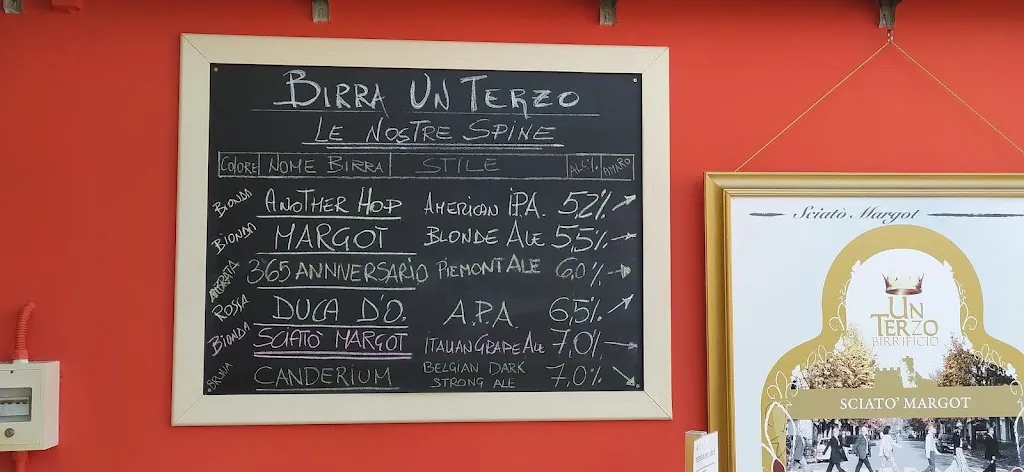 BIRRA UN TERZO
LE NOSTRE SPINE
COLORE NOME BIRRA STILE ALC% AMARO
BIONDA ANOTHER HOP AMERICAN IPA. 5,2%
BIONDA MARGOT BLONDE ALE 5,5%
AMBRATA 365 ANNIVERSARIO PIEMONT ALE 6,0%
ROSSA DUCA D'O. A.P.A. 6,5%
BIONDA SCIATÒ MARGOT ITALIAN GRAPE ALE 7,0%
BRUNA CANDERIUM BELGIAN DARK STRONG ALE 7,0%
Sciatò Margot
UN
TERZO
BIRRIFICIO
SCIATO' MARGOT